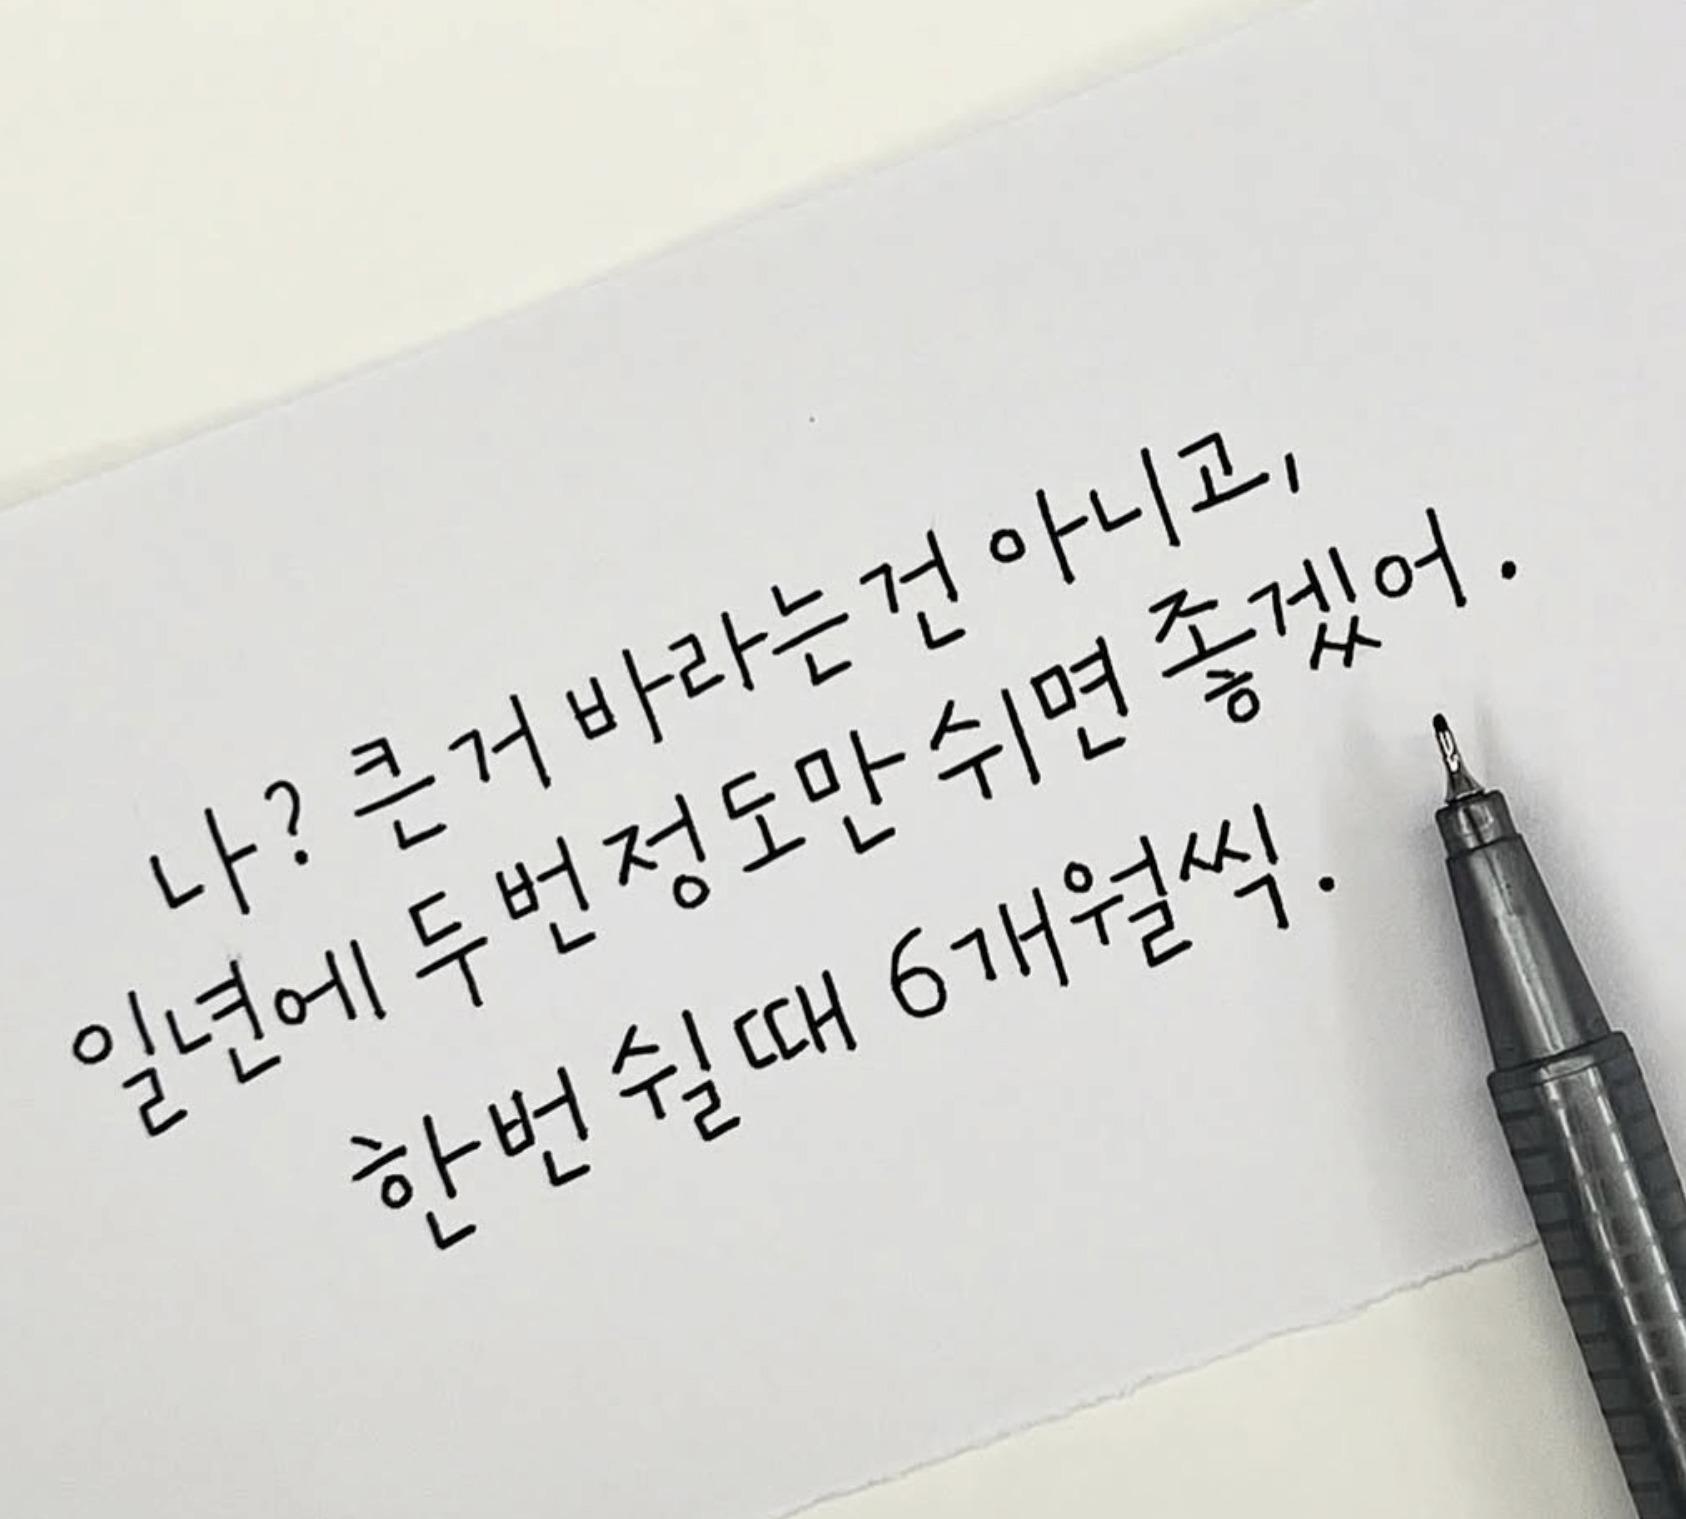 나? 큰 거 바라는건 아니고,
일년에 두 번 정도만 쉬면 좋겠어.
한번 쉴 때 6개월씩.